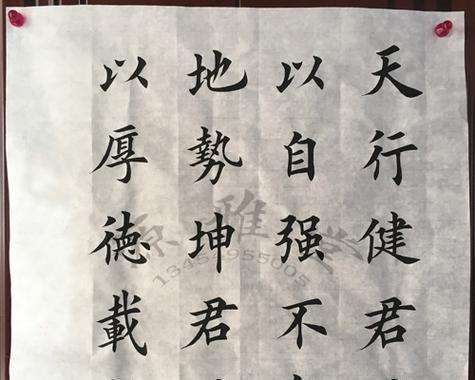 天行健君
以自强不
地勢坤君
以厚德載
13454955005